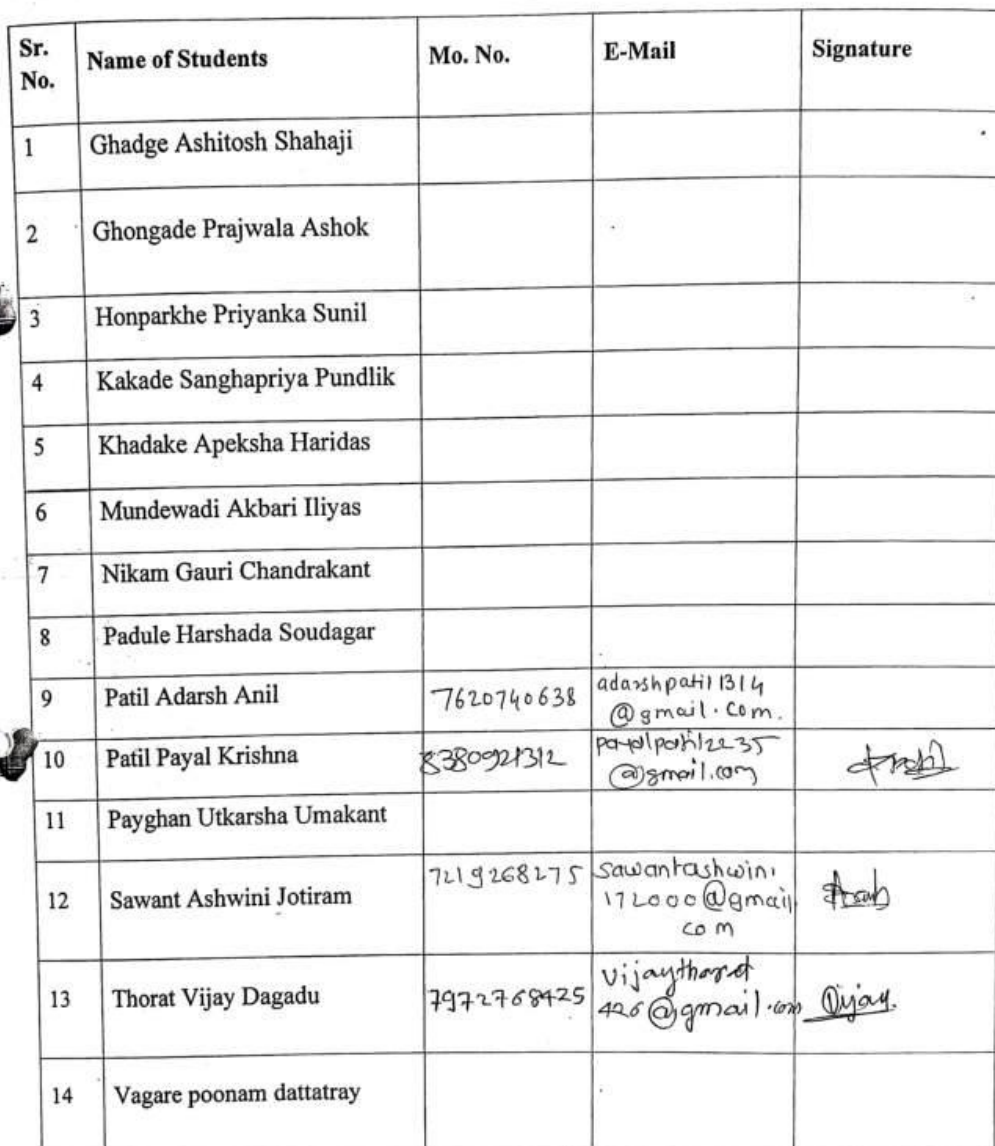 Sr. No. Name of Students Mo. No. E-Mail Signature
1 Ghadge Ashitosh Shahaji
2 Ghongade Prajwala Ashok
3 Honparkhe Priyanka Sunil
4 Kakade Sanghapriya Pundlik
5 Khadake Apeksha Haridas
6 Mundewadi Akbari Iliyas
7 Nikam Gauri Chandrakant
8 Padule Harshada Soudagar
9 Patil Adarsh Anil 7620740638 adarshpatil1314
@gmail.com.
10 Patil Payal Krishna 8380921312 payalpatil2235
@gmail.com
11 Payghan Utkarsha Umakant
12 Sawant Ashwini Jotiram 7219268275 sawantashwini
172000@gmail.
com
13 Thorat Vijay Dagadu 7972768425 vijaythorat
426@gmail.com Vijay.
14 Vagare poonam dattatray